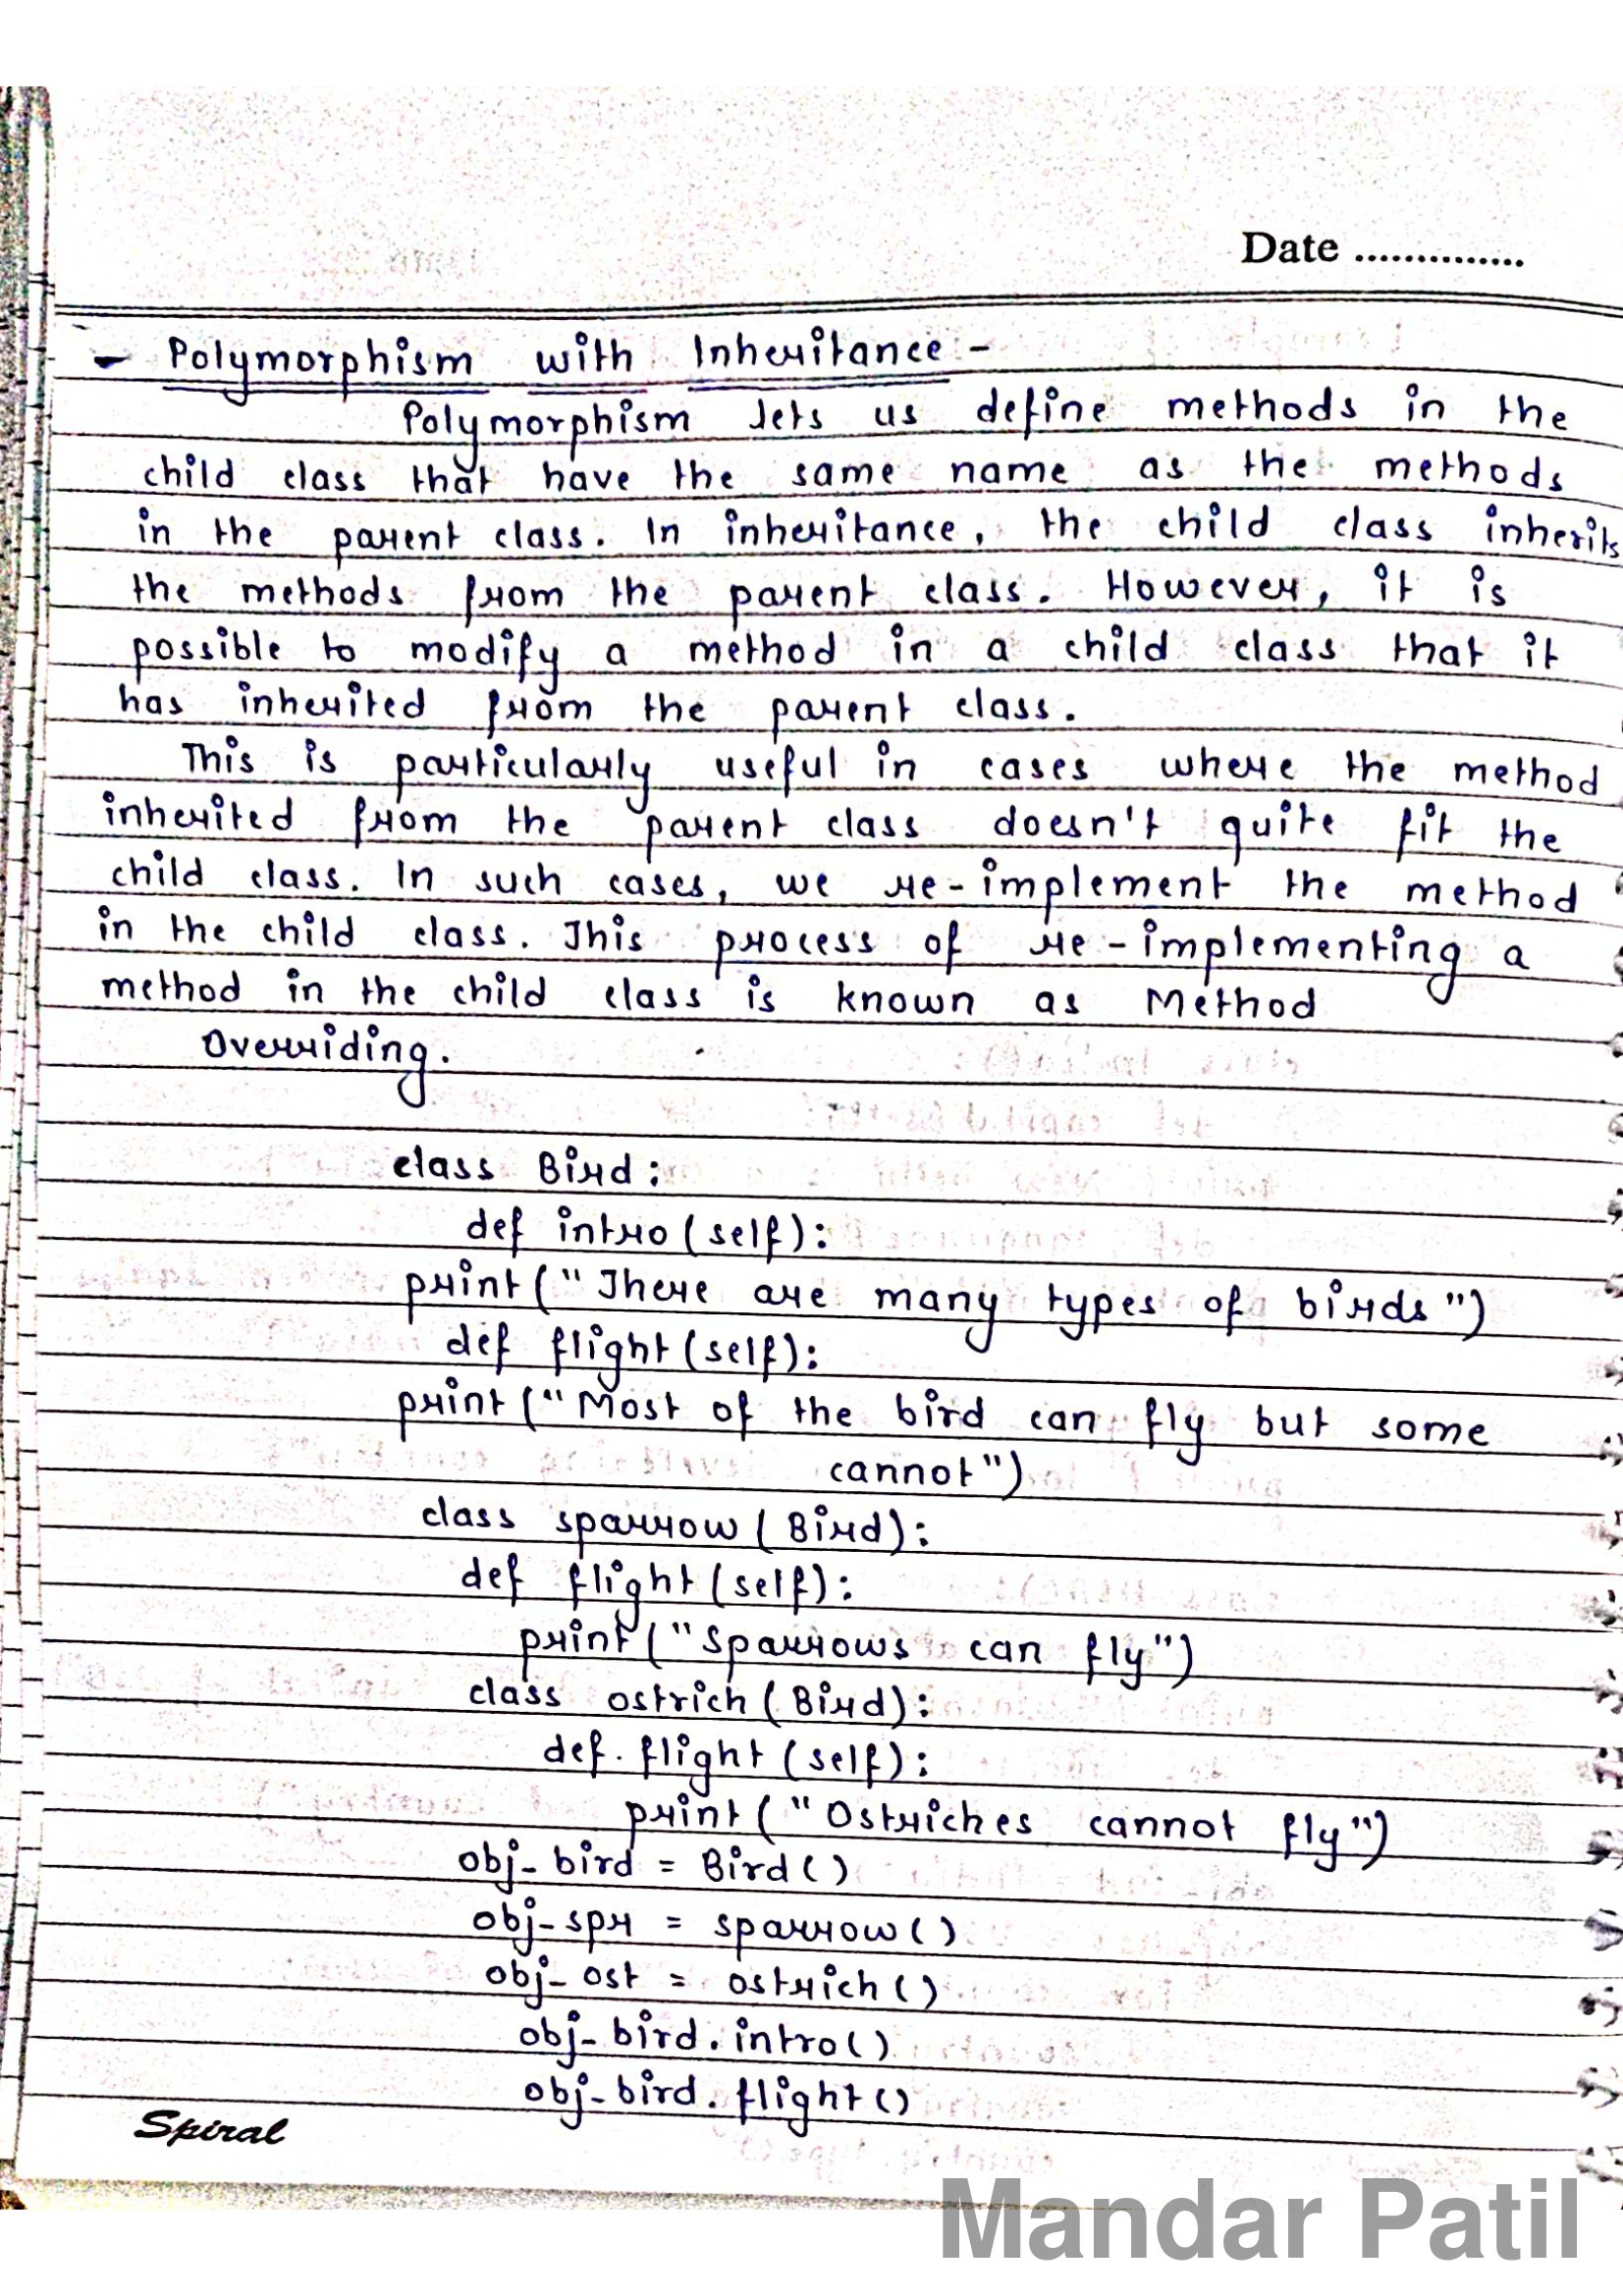 Date ..............
- Polymorphism with Inheritance :-
Polymorphism lets us define methods in the
child class that have the same name as the methods
in the parent class. In inheritance, the child class inherits
the methods from the parent class. However, it is
possible to modify a method in a child class that it
has inherited from the parent class.
This is particularly useful in cases where the method
inherited from the parent class doesn't quite fit the
child class. In such cases, we re-implement the method
in the child class. This process of re-implementing a
method in the child class is known as Method
Overriding.
class Bird:
def intro(self):
print("There are many types of birds")
def flight(self):
print("Most of the bird can fly but some
cannot")
class sparrow(Bird):
def flight(self):
print("Sparrows can fly")
class ostrich(Bird):
def.flight(self):
print("Ostriches cannot fly")
obj_bird = Bird()
obj_spr = sparrow()
obj_ost = ostrich()
obj_bird.intro()
obj_bird.flight()
Spiral
Mandar Patil